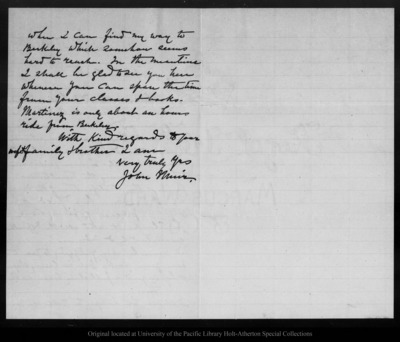 when I can find my way to
Berkeley which somehow seems
hard to reach. In the meantime
I shall be glad to see you here
whenever you can spare the time
from your classes & books.
Martinez is only about an hours
ride from Berkeley.
With kind regards to your
wife & family & brother I am
very truly yrs
John Muir.
Original located at University of the Pacific Library Holt-Atherton Special Collections